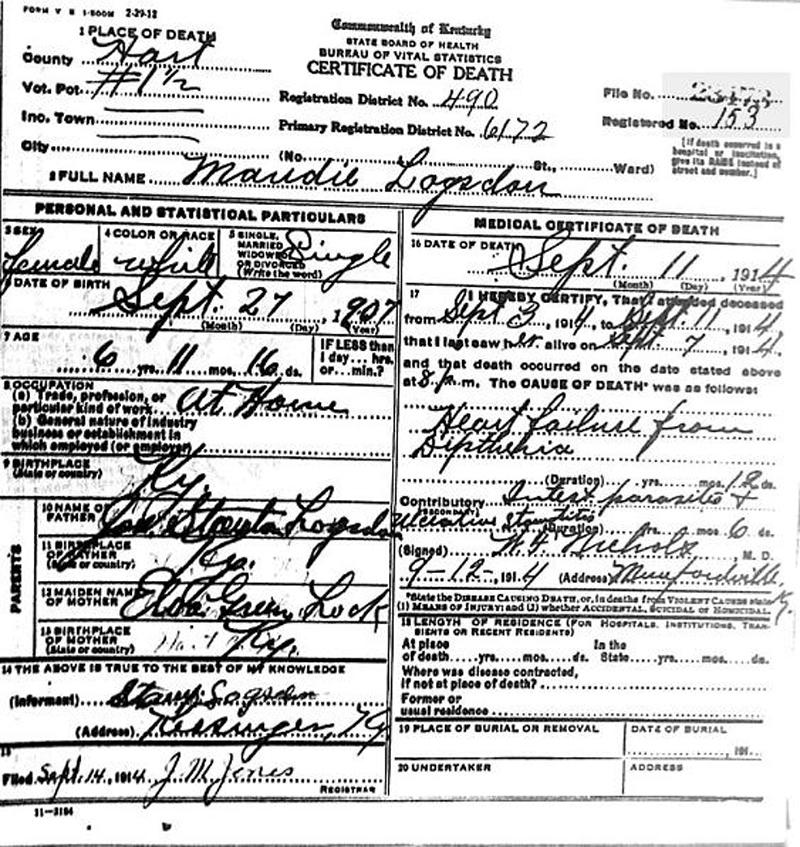 FORM V S 1-500M 2-29-12
Commonwealth of Kentucky
STATE BOARD OF HEALTH
BUREAU OF VITAL STATISTICS
CERTIFICATE OF DEATH
1 PLACE OF DEATH
County Hart
Vot. Pct. #1½
Inc. Town
City
Registration District No. 490
Primary Registration District No. 6172
File No.
Registered No. 153
(No. St., Ward)
[If death occurred in a hospital or institution, give its NAME instead of street and number.]
2 FULL NAME Maudie Logsdon
PERSONAL AND STATISTICAL PARTICULARS
3 SEX female
4 COLOR OR RACE white
5 SINGLE, MARRIED WIDOWED OR DIVORCED (Write the word) Single
DATE OF BIRTH
Sept. 27, 1907
(Month) (Day) (Year)
7 AGE
6 yrs. 11 mos. 16 ds.
IF LESS than 1 day... hrs. or... min.?
8 OCCUPATION
(a) Trade, profession, or particular kind of work At Home
(b) General nature of industry
business or establishment in
which employed (or employer)
9 BIRTHPLACE
(State or country) Ky.
PARENTS
10 NAME OF FATHER Stanton Logsdon
11 BIRTHPLACE OF FATHER (State or country) Ky.
12 MAIDEN NAME OF MOTHER Green Lock
13 BIRTHPLACE OF MOTHER (State or country) Ky.
14 THE ABOVE IS TRUE TO THE BEST OF MY KNOWLEDGE
(Informant) Logsdon
(Address) Kessinger, Ky
15
Filed Sept. 14, 1914 J. M. Jones
REGISTRAR
11-3184
MEDICAL CERTIFICATE OF DEATH
16 DATE OF DEATH
Sept. 11, 1914
(Month) (Day) (Year)
17 I HEREBY CERTIFY, That I attended deceased
from Sept 3, 1914, to Sept. 11, 1914,
that I last saw her alive on Sept. 7, 1914,
and that death occurred on the date stated above
at 8 p.m. The CAUSE OF DEATH* was as follows:
Heart failure from
Diptheria
(Duration) yrs. mos. 12 ds.
Contributory Intest. parasites &
(SECONDARY) Ulcerative Stomatitis
(Duration) yrs. mos. 6 ds.
(Signed) Nichols, M. D.
9-12-, 1914 (Address) Munfordville, Ky.
*State the DISEASE CAUSING DEATH, or, in deaths from VIOLENT CAUSES state
(1) MEANS OF INJURY; and (2) whether ACCIDENTAL, SUICIDAL or HOMICIDAL.
18 LENGTH OF RESIDENCE (FOR HOSPITALS, INSTITUTIONS, TRANSIENTS OR RECENT RESIDENTS)
At place of death... yrs. mos. ds. In the State... yrs. mos. ds.
Where was disease contracted,
if not at place of death?
Former or
usual residence
19 PLACE OF BURIAL OR REMOVAL
DATE OF BURIAL
, 191
20 UNDERTAKER
ADDRESS